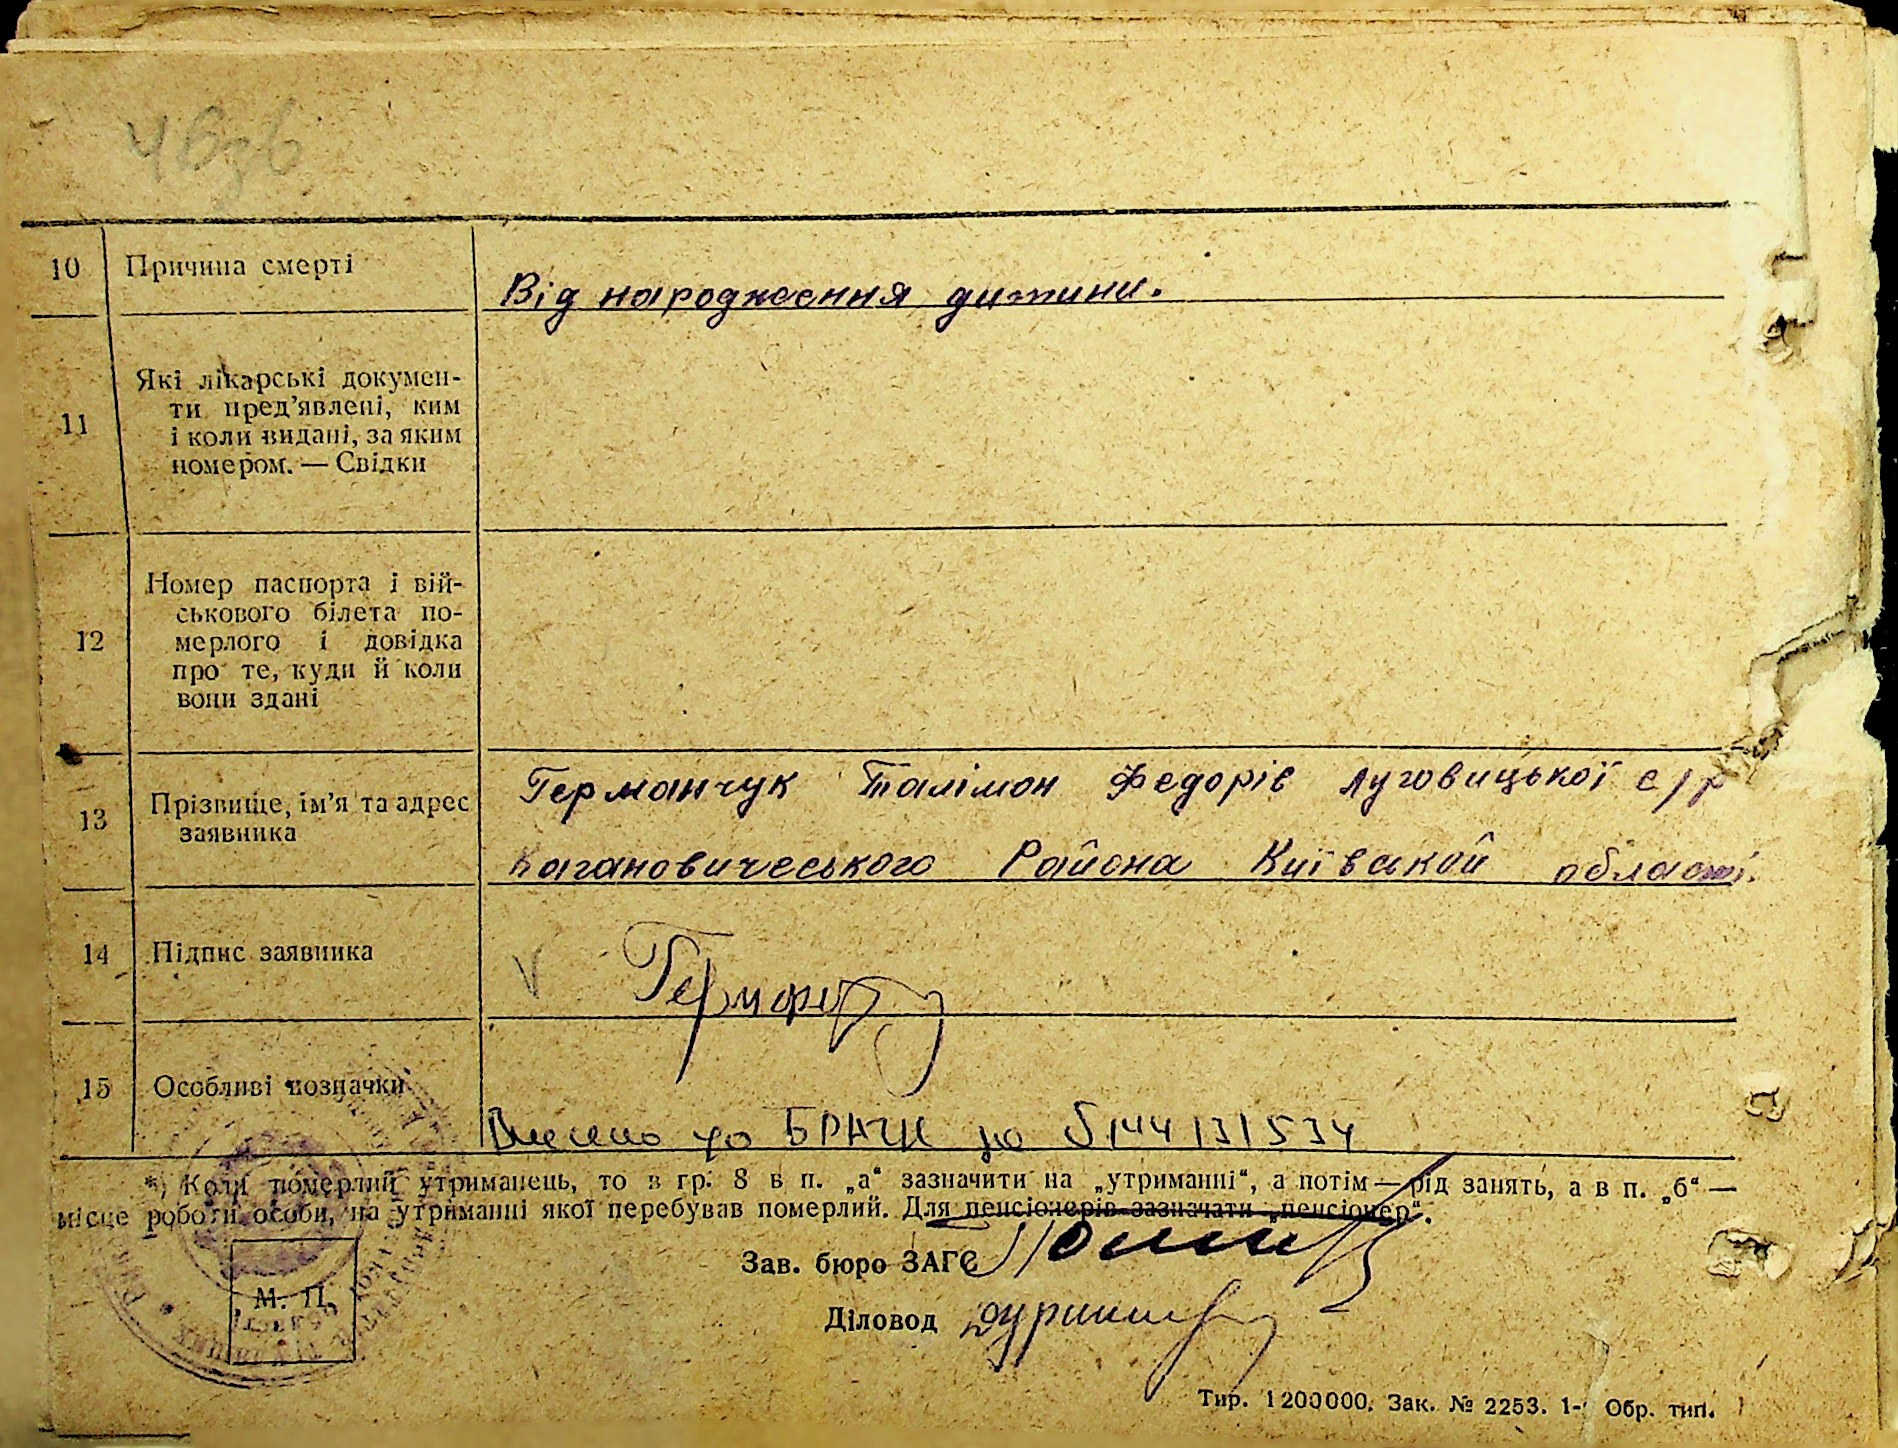 10 Причина смерті
Від народження дитини.
11 Які лікарські докумен-
ти пред'явлені, ким
і коли видані, за яким
номером. — Свідки
12 Номер паспорта і вій-
ськового білета по-
мерлого і довідка
про те, куди й коли
вони здані
13 Прізвище, ім'я та адрес
заявника
Германчук Талімон Федорів Луговицької с/р
Кагановичеського Района Київськой області.
14 Підпис заявника
15 Особливі позначки
Внесено до ДРАЦС
*) Коли померлий утриманець, то в гр. 8 в п. „а“ зазначити на „утриманні“, а потім — рід занять, а в п. „б“ —
місце роботи особи, на утриманні якої перебував померлий. Для пенсіонерів зазначати „пенсіонер“.
Зав. бюро ЗАГС
М. П.
Діловод
Тир. 1200000. Зак. № 2253. 1- Обр. тип.